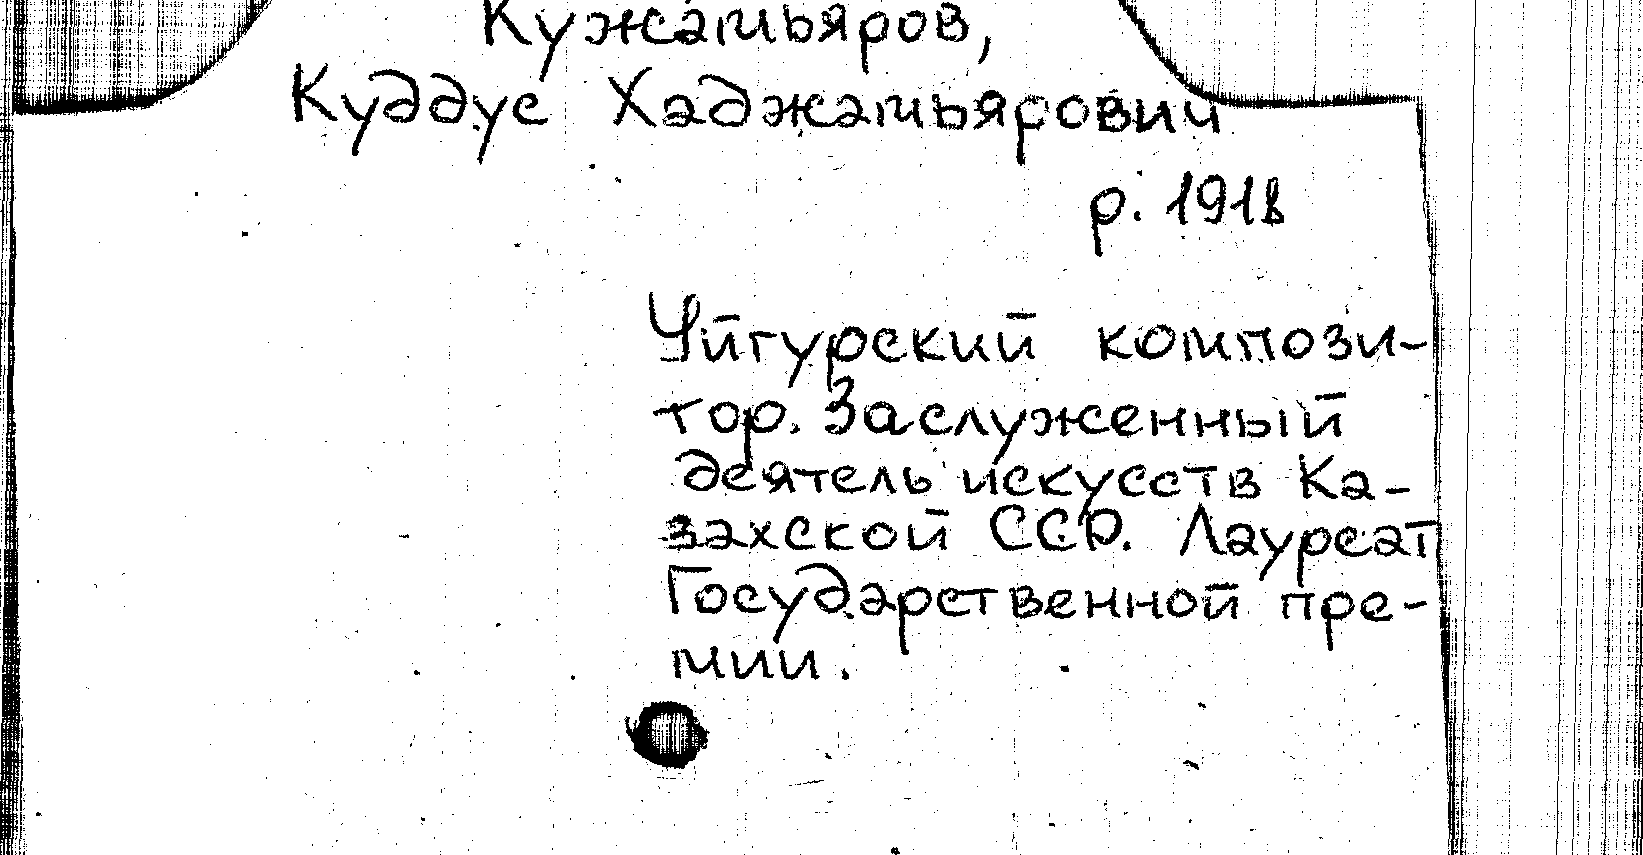 Кужамьяров,
Куддус Хаджамьярович
р. 1918
Уйгурский компози-
тор. Заслуженный
деятель искусств Ка-
захской ССР. Лауреат
Государственной пре-
мии.